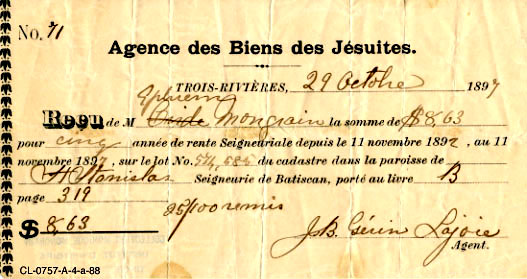 No. 71
Agence des Biens des Jésuites.
TROIS-RIVIÈRES, 29 Octobre 1897
Ephrem
Reçu de M Mongrain la somme de $8,63
pour cinq année de rente Seigneuriale depuis le 11 novembre 1892, au 11
novembre 1897, sur le lot No. du cadastre dans la paroisse de
St Stanislas Seigneurie de Batiscan, porté au livre B
page 319
25/100 remis
$ 8,63
J. B. Gérin Lajoie
Agent.
CL-0757-A-4-a-88